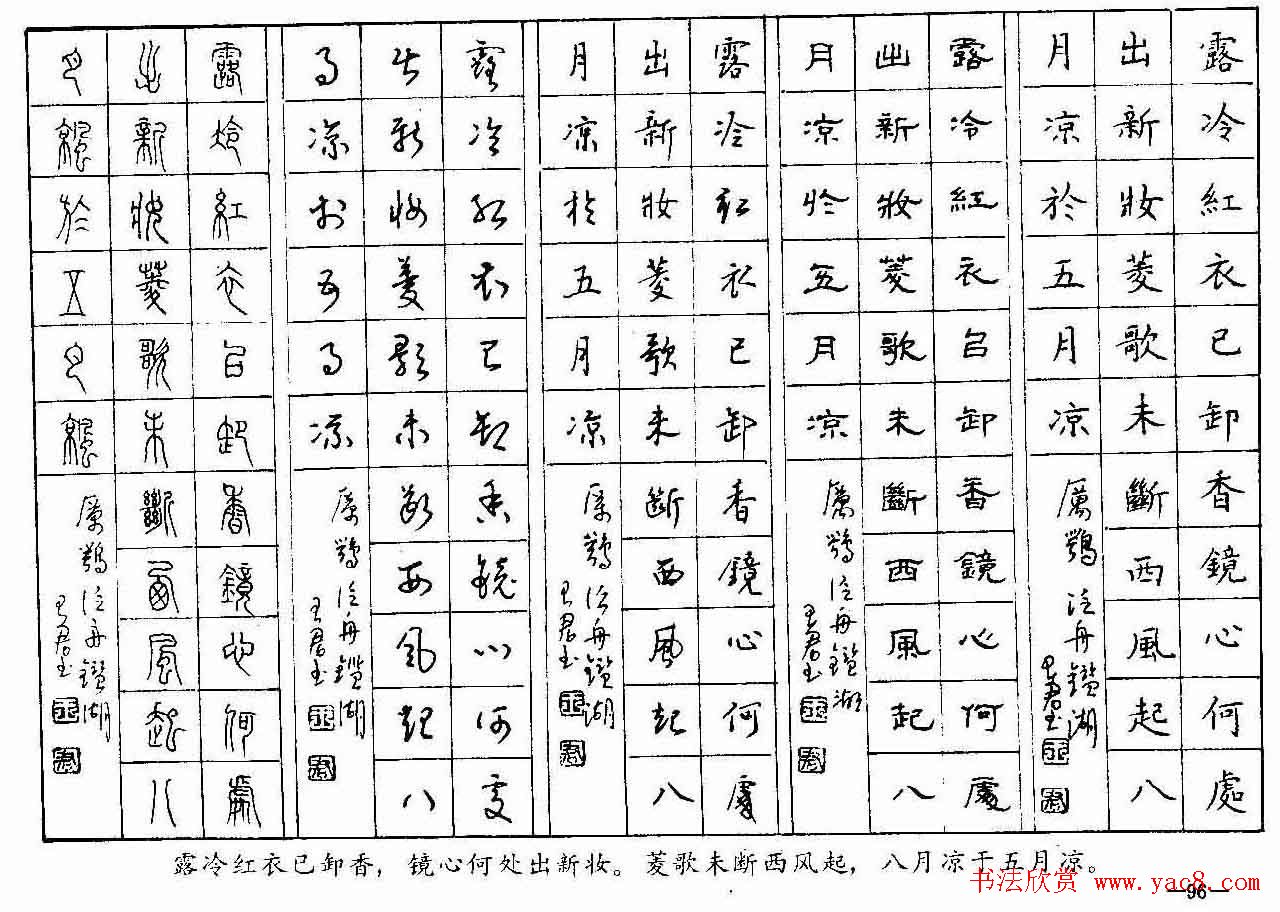 露冷紅衣已卸香鏡心何處
出新妝菱歌未斷西風起八
月凉於五月凉
厲鶚泛舟鑑湖
王君书
露冷紅衣已卸香鏡心何處
出新妝菱歌未斷西風起八
月凉於五月凉
厲鶚泛舟鑑湖
王君书
露冷紅衣已卸香鏡心何處
出新妝菱歌未斷西風起八
月凉於五月凉
厲鶚泛舟鑑湖
王君书
露冷紅衣已卸香鏡心何處
出新妝菱歌未斷西風起八
月凉於五月凉
厲鶚泛舟鑑湖
王君书
露冷紅衣已卸香鏡心何處
出新妝菱歌未斷西風起八
月凉於五月凉
厲鶚泛舟鑑湖
王君书
露冷红衣已卸香，镜心何处出新妆。菱歌未断西风起，八月凉于五月凉。
书法欣赏 www.yac8.com
—96—